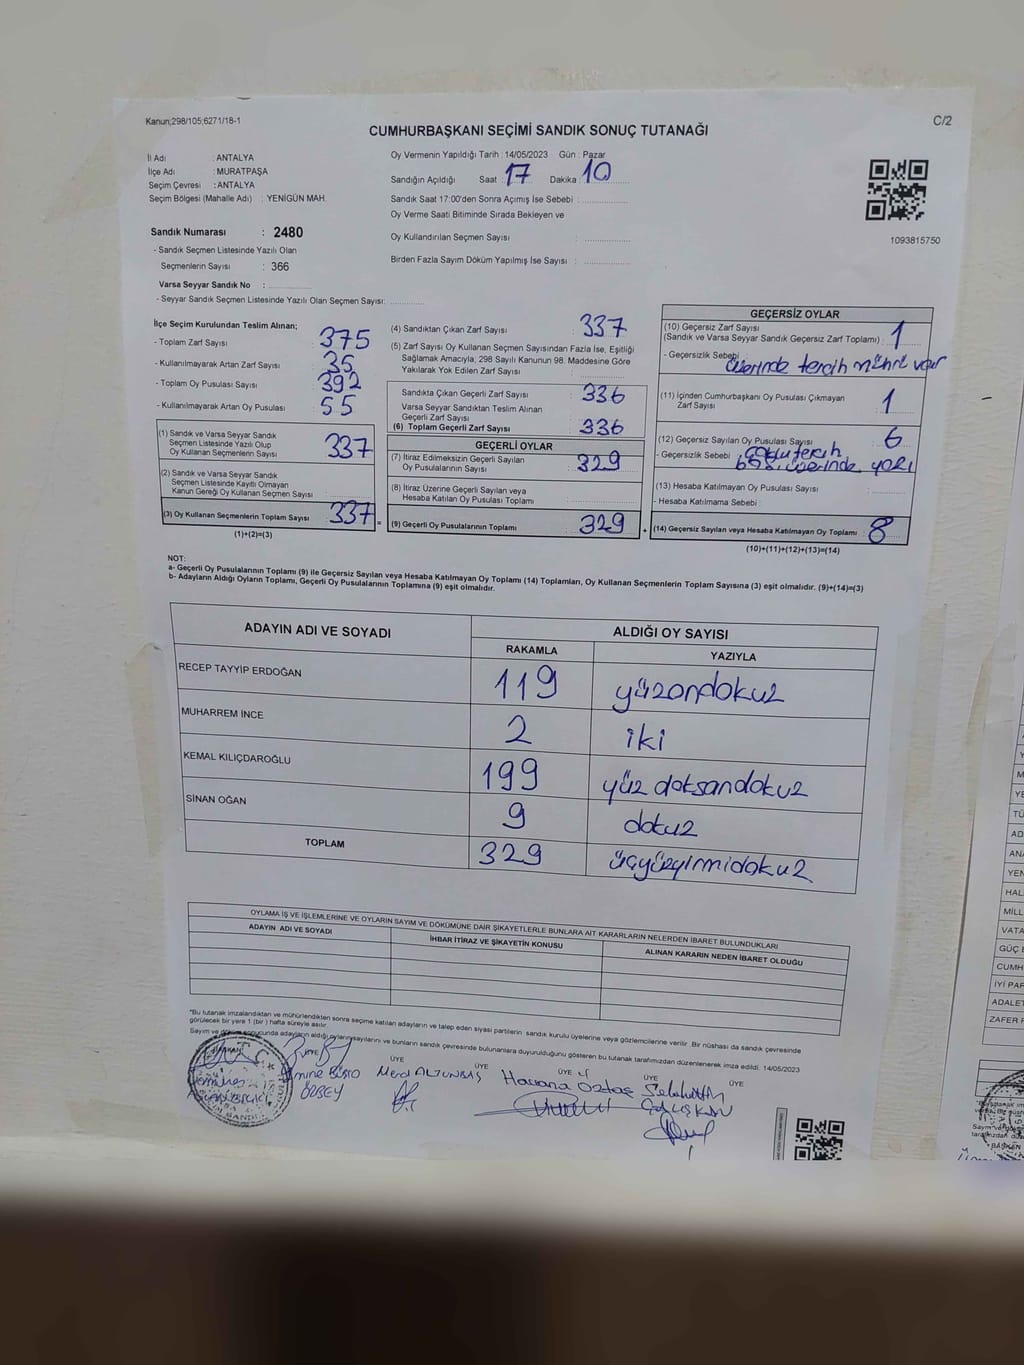 Kanun;298/105;6271/18-1
C/2
CUMHURBAŞKANI SEÇİMİ SANDIK SONUÇ TUTANAĞI
İl Adı : ANTALYA
İlçe Adı : MURATPAŞA
Seçim Çevresi : ANTALYA
Seçim Bölgesi (Mahalle Adı) : YENİGÜN MAH.
Sandık Numarası : 2480
- Sandık Seçmen Listesinde Yazılı Olan
Seçmenlerin Sayısı : 366
Varsa Seyyar Sandık No :
- Seyyar Sandık Seçmen Listesinde Yazılı Olan Seçmen Sayısı:
Oy Vermenin Yapıldığı Tarih : 14/05/2023 Gün : Pazar
Sandığın Açıldığı Saat : 17 Dakika : 10
Sandık Saat 17:00'den Sonra Açımış İse Sebebi :
Oy Verme Saati Bitiminde Sırada Bekleyen ve
Oy Kullandırılan Seçmen Sayısı :
Birden Fazla Sayım Döküm Yapılmış İse Sayısı :
1093815750
İlçe Seçim Kurulundan Teslim Alınan;
- Toplam Zarf Sayısı : 375
- Kullanılmayarak Artan Zarf Sayısı : 35
- Toplam Oy Pusulası Sayısı : 392
- Kullanılmayarak Artan Oy Pusulası : 55
(1) Sandık ve Varsa Seyyar Sandık
Seçmen Listesinde Yazılı Olup
Oy Kullanan Seçmenlerin Sayısı : 337
(2) Sandık ve Varsa Seyyar Sandık
Seçmen Listesinde Kayıtlı Olmayan
Kanun Gereği Oy Kullanan Seçmen Sayısı :
(3) Oy Kullanan Seçmenlerin Toplam Sayısı : 337
(1)+(2)=(3)
=
(4) Sandıktan Çıkan Zarf Sayısı : 337
(5) Zarf Sayısı Oy Kullanan Seçmen Sayısından Fazla İse, Eşitliği
Sağlamak Amacıyla, 298 Sayılı Kanunun 98. Maddesine Göre
Yakılarak Yok Edilen Zarf Sayısı :
Sandıkta Çıkan Geçerli Zarf Sayısı : 336
Varsa Seyyar Sandıktan Teslim Alınan
Geçerli Zarf Sayısı :
(6) Toplam Geçerli Zarf Sayısı : 336
GEÇERLİ OYLAR
(7) İtiraz Edilmeksizin Geçerli Sayılan
Oy Pusulalarının Sayısı : 329
(8) İtiraz Üzerine Geçerli Sayılan veya
Hesaba Katılan Oy Pusulası Toplamı :
(9) Geçerli Oy Pusulalarının Toplamı : 329
+
GEÇERSİZ OYLAR
(10) Geçersiz Zarf Sayısı
(Sandık ve Varsa Seyyar Sandık Geçersiz Zarf Toplamı) : 1
- Geçersizlik Sebebi : üzerinde tercih mührü var
(11) İçinden Cumhurbaşkanı Oy Pusulası Çıkmayan
Zarf Sayısı : 1
(12) Geçersiz Sayılan Oy Pusulası Sayısı : 6
- Geçersizlik Sebebi :
üzerinde yazı
(13) Hesaba Katılmayan Oy Pusulası Sayısı :
- Hesaba Katılmama Sebebi :
(14) Geçersiz Sayılan veya Hesaba Katılmayan Oy Toplamı : 8
(10)+(11)+(12)+(13)=(14)
NOT:
a- Geçerli Oy Pusulalarının Toplamı (9) ile Geçersiz Sayılan veya Hesaba Katılmayan Oy Toplamı (14) Toplamları, Oy Kullanan Seçmenlerin Toplam Sayısına (3) eşit olmalıdır. (9)+(14)=(3)
b- Adayların Aldığı Oyların Toplamı, Geçerli Oy Pusulalarının Toplamına (9) eşit olmalıdır.
ADAYIN ADI VE SOYADI ALDIĞI OY SAYISI
RAKAMLA YAZIYLA
RECEP TAYYİP ERDOĞAN 119 yüzondokuz
MUHARREM İNCE 2 iki
KEMAL KILIÇDAROĞLU 199 yüz doksandokuz
SİNAN OĞAN 9 dokuz
TOPLAM 329 üçyüzyirmidokuz
OYLAMA İŞ VE İŞLEMLERİNE VE OYLARIN SAYIM VE DÖKÜMÜNE DAİR ŞİKAYETLERLE BUNLARA AİT KARARLARIN NELERDEN İBARET BULUNDUKLARI
ADAYIN ADI VE SOYADI İHBAR İTİRAZ VE ŞİKAYETİN KONUSU ALINAN KARARIN NEDEN İBARET OLDUĞU
"Bu tutanak imzalandıktan ve mühürlendikten sonra seçime katılan adayların ve talep eden siyasi partilerin sandık kurulu üyelerine veya gözlemcilerine verilir. Bir nüshası da sandık çevresinde
görülecek bir yere 1 (bir) hafta süreyle asılır.
Sayım ve döküm sonucunda adayların aldığı oyların sayılarını ve bunların sandık çevresinde bulunanlara duyurulduğunu gösteren bu tutanak tarafımızdan düzenlenerek imza edildi. 14/05/2023
ÜYE ÜYE ÜYE ÜYE ÜYE
ÖZBEY
Mera ALTUNBAŞ
Havana Öztaş
Selahattin
ÇALIŞKAN